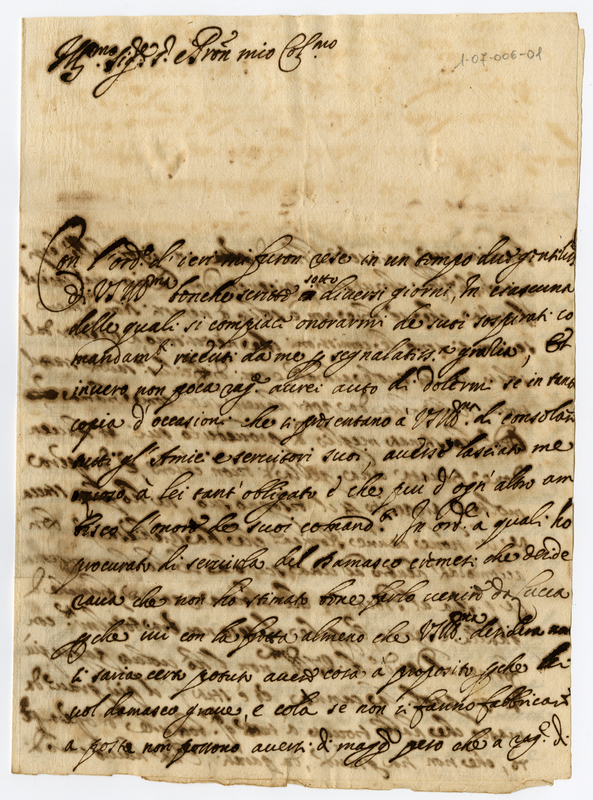 Ill.mo Sig.re e Pron mio Col.mo
1-07-006-01
Con l'ord.o di ieri mi furon rese in un tempo due gentiliss.e
di VS Ill.ma benche scritte sotto diversi giorni, In ciascuna
delle quali si compiace onorarmi de suoi sospirati co
mandam.ti, ricevuti da me p segnalatiss.a grazia, Et
invero non poca rag.e averei auto di dolermi se in tanta
copia d'occasioni che si presentano à VS Ill.ma di consolare
tutti gl'Amici e servitori suoi, avesse lasciato me
à lei tant' obligato e che piu d'ogn' altro am
bisco l'onore de suoi comand.ti In ord.e a quali ho
procurato di servirla del Damasco cremesi che desde
rava che non ho stimato bene farlo venire da Lucca
pche ivi con la fretta almeno che VS Ill.ma desidera non
si saria certo potuto avere cosa à proposito pche lei
vol damasco grave, e colà se non si fanno fabbricare
a posta non possono aversi di magg.r peso che a rag.e di